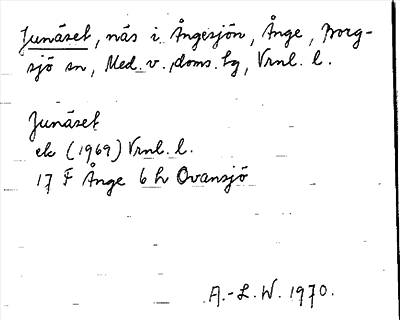 Junäset, näs i Ångesjön, Ånge, Borg-
sjö sn, Med. v. doms. tg, Vrnl. l.
Junäset
ek (1969) Vrnl. l.
17 F Ånge 6 h Ovansjö
A.-L. W. 1970.